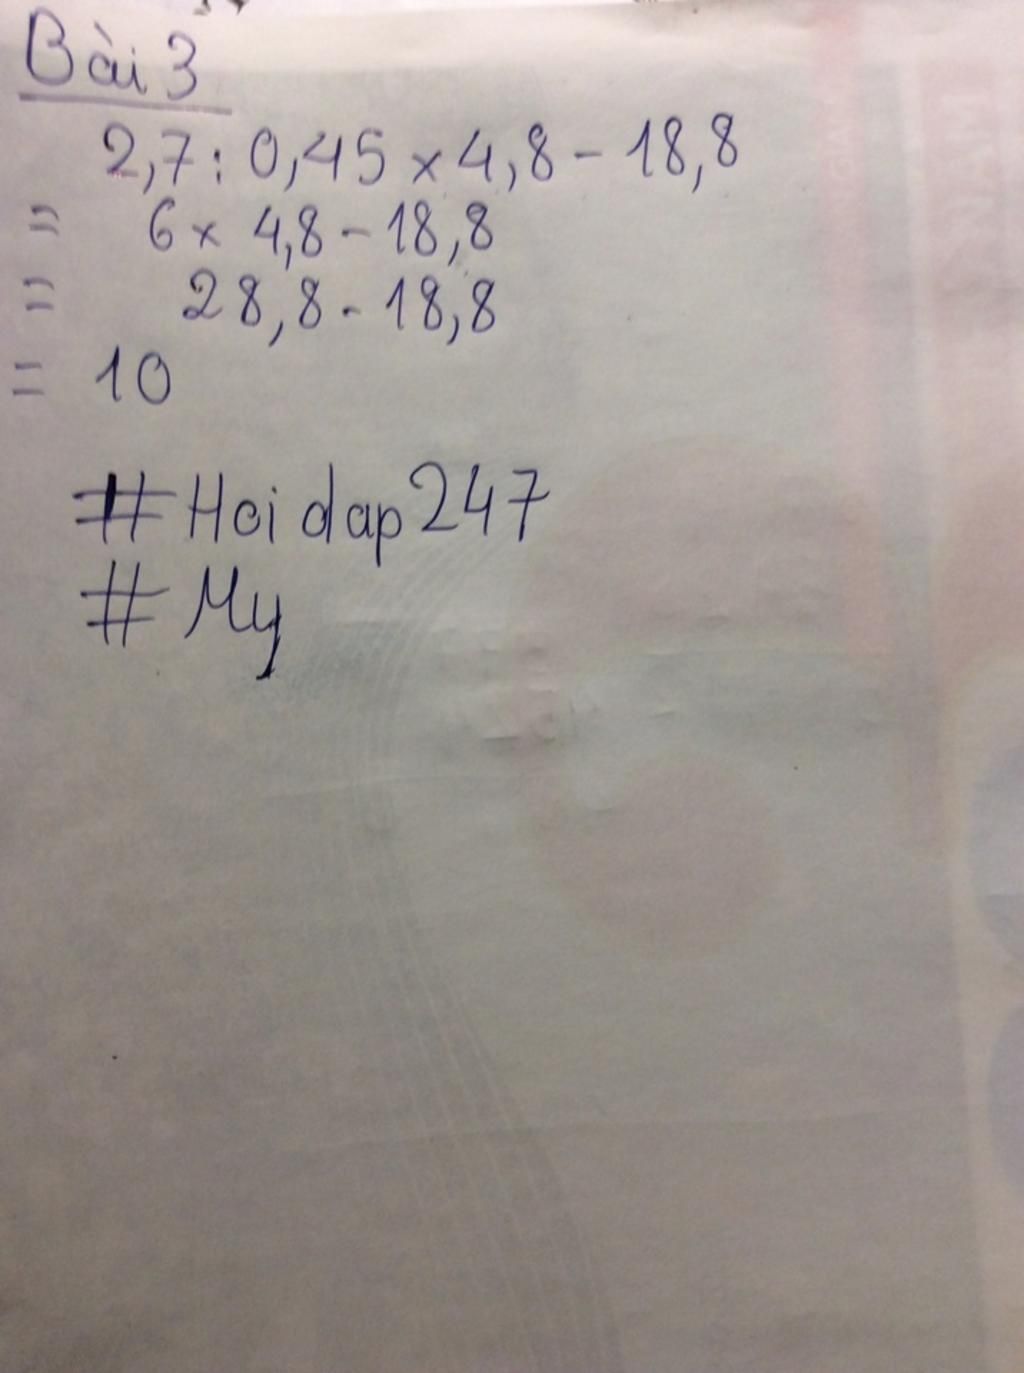 Bài 3
2,7 : 0,45 x 4,8 - 18,8
= 6 x 4,8 - 18,8
= 28,8 - 18,8
= 10
# Hoidap247
# My